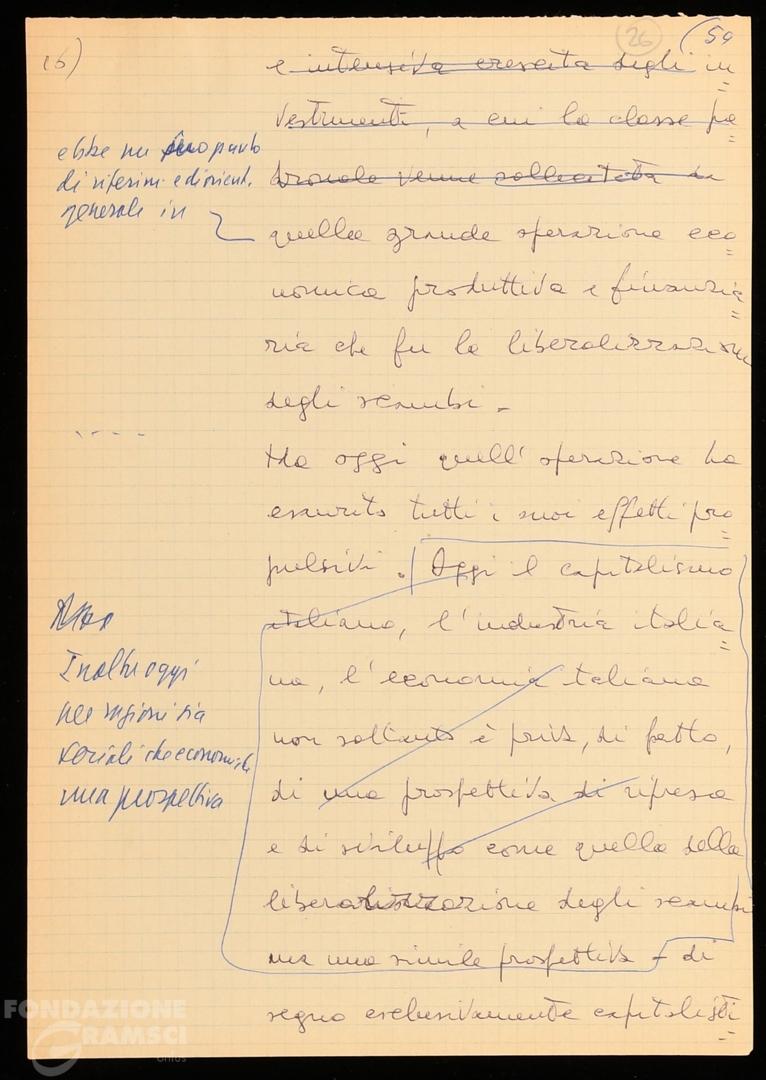 16)
26
(59
e intensiva crescita degli in
vestimenti, a cui la classe pa
dronale venne sollecitata da
ebbe un suo punto
di riferim. e di orient.
generale in
quella grande operazione eco
nomica produttiva e finanzia
ria che fu la liberalizzazione
degli scambi.
Ma oggi quell'operazione ha
esaurito tutti i suoi effetti pro
pulsivi. Oggi il capitalismo
italiano, l'industria italia
na, l'economia italiana
non soltanto è priva, di fatto,
di una prospettiva di ripresa
e di sviluppo come quella della
liberalizzazione degli scambi
ma una simile prospettiva - di
segno esclusivamente capitalisti
Inoltre oggi
per ragioni sia
sociali che economiche
una prospettiva
FONDAZIONE
GRAMSCI
onlus